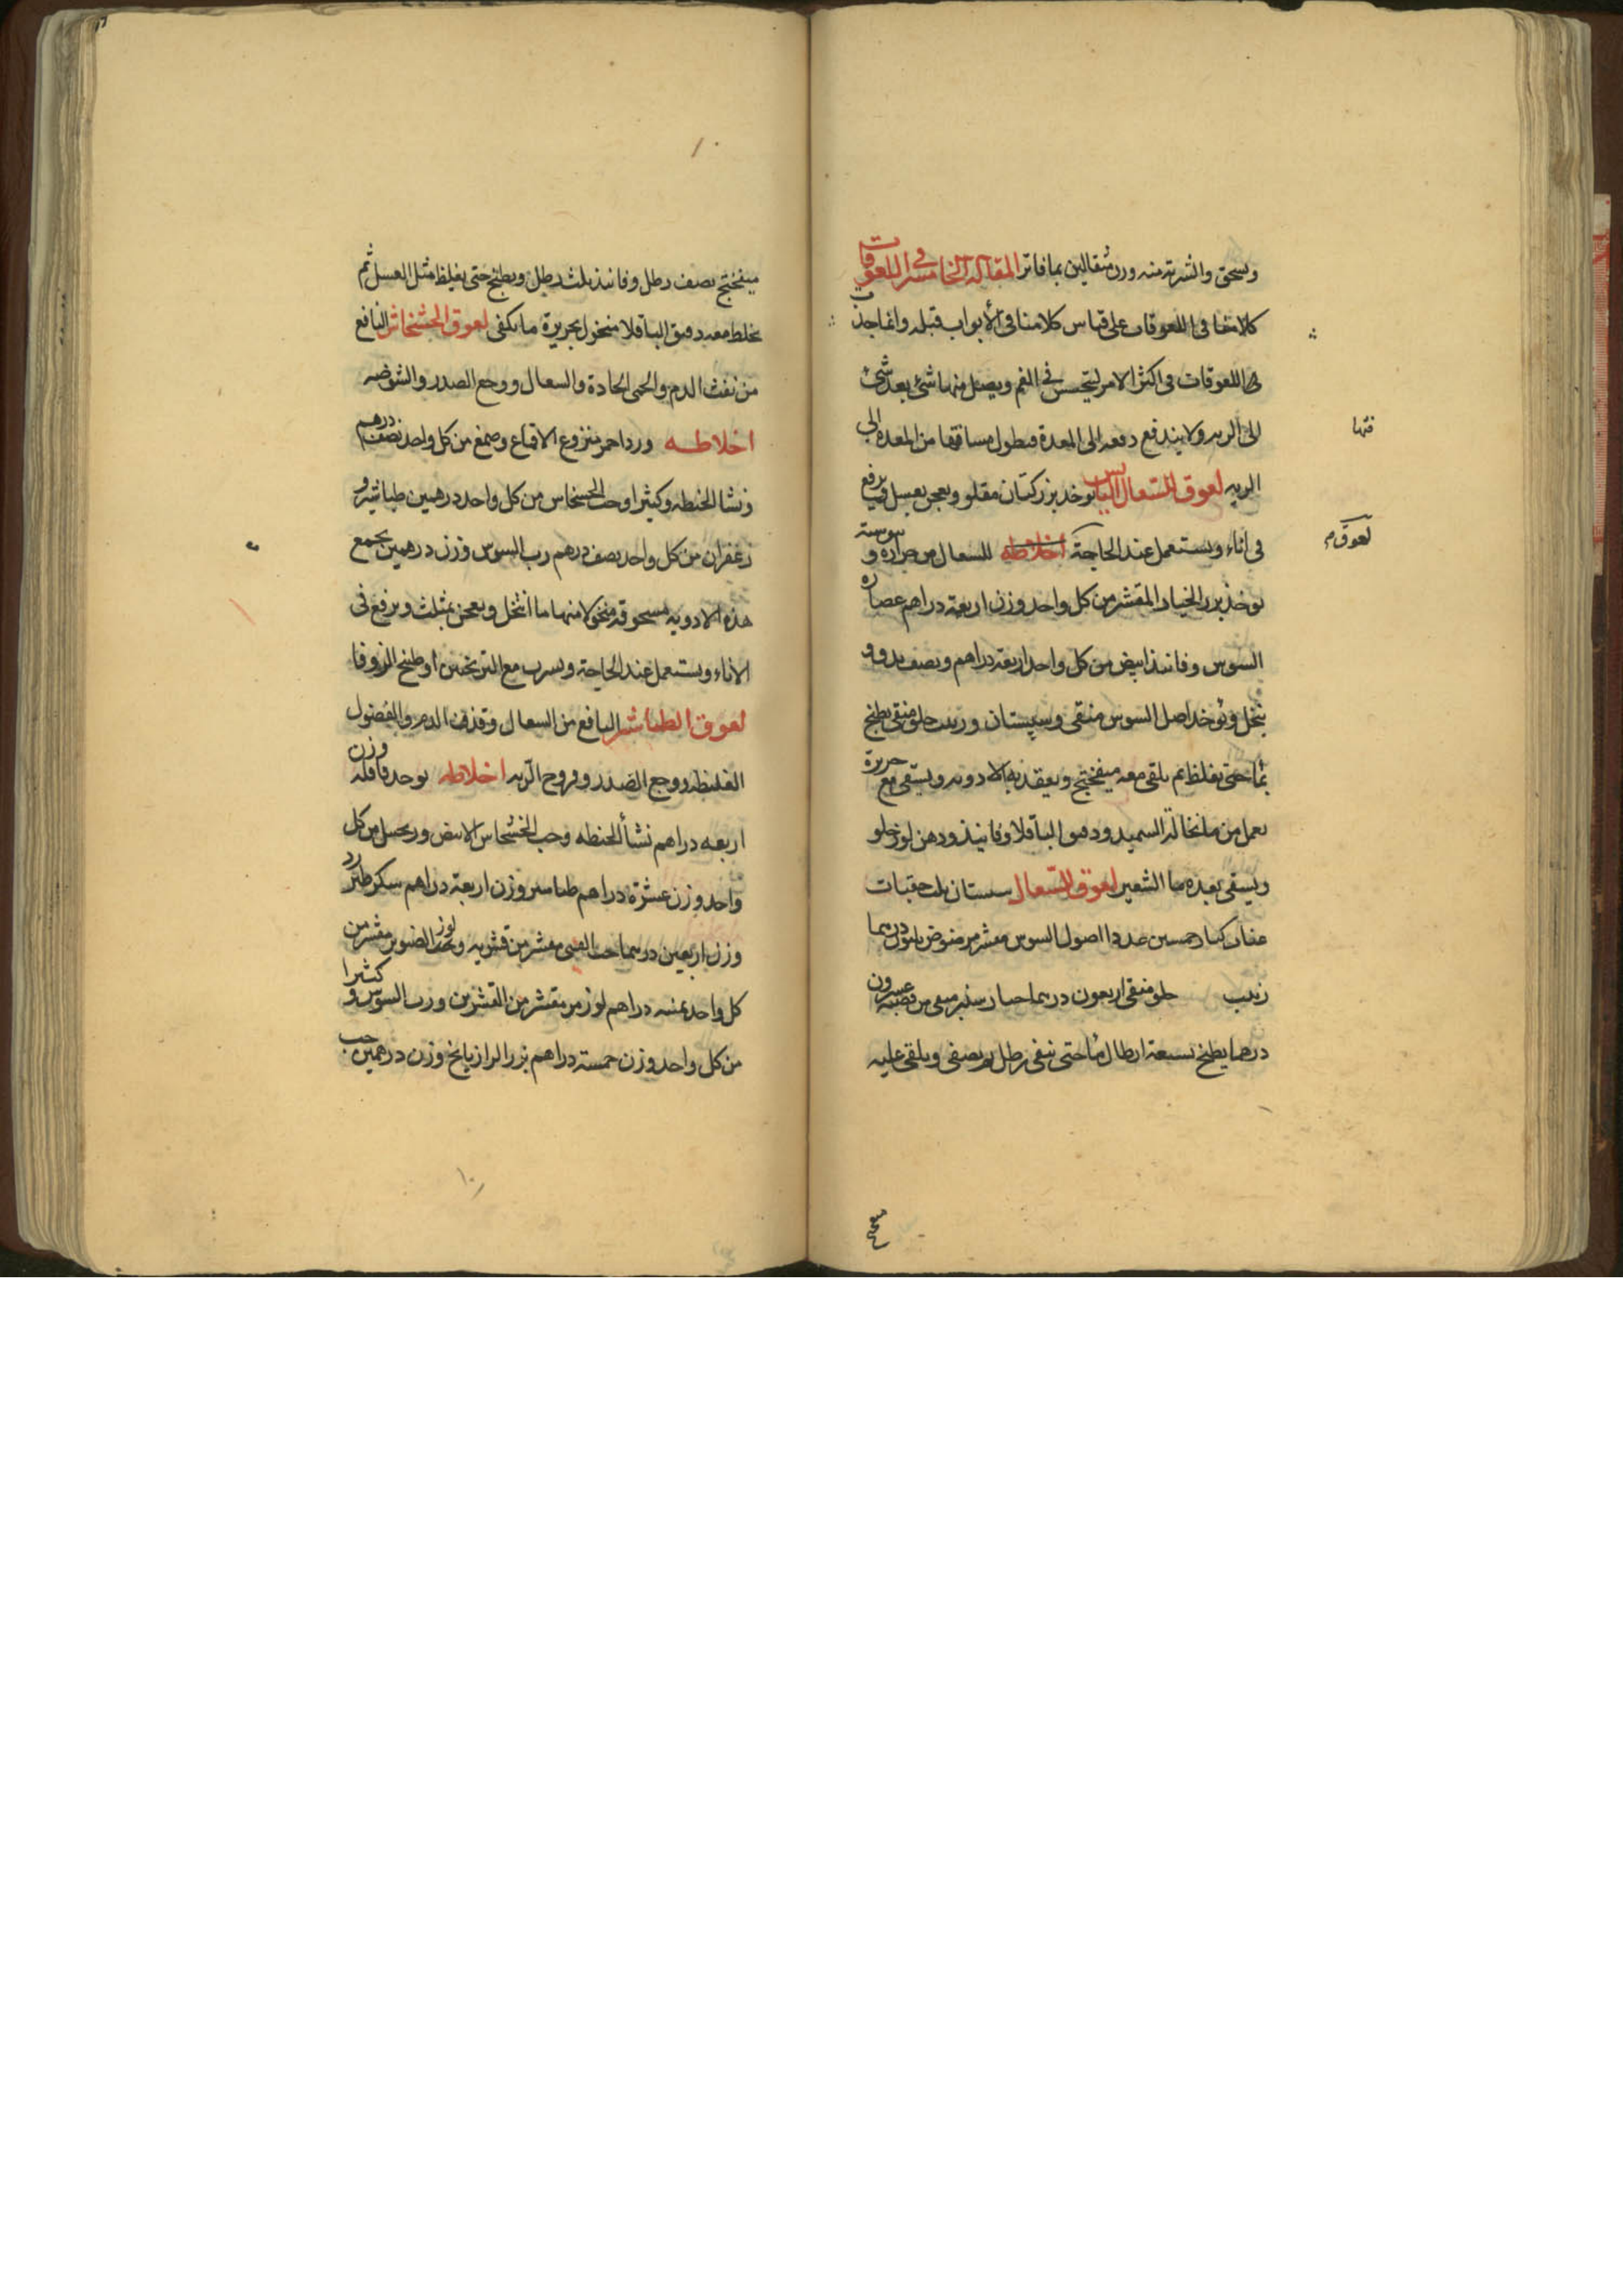 ويسحق والشربة منه وزن مثقالين بما فاتر المقالة الخامسة في اللعوقات
كلامنا في اللعوقات على قياس كلامنا في الأبواب قبله وانما جذب
هى اللعوقات في اكثر الامر ليتحبس في الفم ويصل منها شئ بعد شئ
الى الريه ولا يندفع دفعه الى المعدة فيطول مسافتها من المعده الى
فتها
الريه لعوق السعال اليابس يوخذ بزر كتان مقلو ويعجن بعسل ويرفع
في اناء ويستعمل عند الحاجة اخلاطه للسعال من حراره ويبوسة
لعوق م
يوخذ بزر الخيار المقشر من كل واحد وزن اربعة دراهم عصاره
السوس وفانيذ ابيض من كل واحد اربعة دراهم ونصف يدق و
ينخل ويوخذ اصل السوس منقى وسپستان وزبيب حلو منقى يطبخ
بما حتى يغلظ ثم يلقى معه ميفختج ويعقد به الادويه ويسقى مع حريرة
يعمل من ما نخالة السميد ودقيق الباقلا وفانيذ ودهن لوز حلو
ويسقى بعده ما الشعير لعوق للسعال سبستان ثلث حفنات
عناب كبار خمسين عددا اصول السوس مقشر مرضوض درهما
زبيب حلو منقى اربعون درهما خيار شنبر منقى من قصبه عسرون
درهما يطبخ بسبعة ارطال ما حتى يبقى رطل ويصفى ويلقى عليه
ميفختج
ميفختج نصف رطل وفانيذ ثلث رطل ويطبخ حتى يغلظ مثل العسل ثم
يخلط معه دقيق الباقلا منخول بحريرة ما يكفى لعوق الخشخاش النافع
من نفث الدم والحمى الحادة والسعال ووجع الصدر والشوصه
اخلاطه ورد احمر منزوع الاقماع وصمغ من كل واحد نصف درهم
ونشا الحنطه وكثيرا وحب الخسخاس من كل واحد درهمين طباشير و
زعفران من كل واحد نصف درهم رب السوس وزن درهمين يجمع
هذه الادويه مسحوقه منخولا منها ما انتخل ويعجن بمثلث ويرفع في
الاناء ويستعمل عند الحاجة ويسرب مع الترنجبين او طبيخ الزوفا
لعوق الطباشير النافع من السعال وقذف الدم والفضول
الغليظه ووجع الصدر وقروح الريه اخلاطه يوخد قاقله وزن
اربعه دراهم نشأ الحنطه وحب الخشخاس الابيض من كل
واحد وزن عشرة دراهم طباسير وزن اربعة دراهم سكر طبرزد
وزن اربعين درهما حب مقشر من قشريه وحب الصنوبر مقشر من
كل واحد دراهم لوز مر مقشر من القشرين ورب السوس و كثيرا
من كل واحد وزن خمسة دراهم بزر الرازيانج وزن درهمين حب